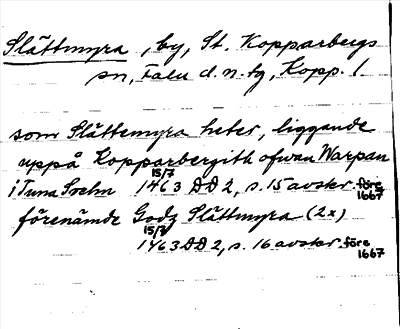 Slättmyra, by, St. Kopparbergs
sn, Falu d. n. tg, Kopp. l.
som Slättemyra heter, liggande
uppå Kopparbergith ofwan Warpan
i Tuna Sochn 15/7 1463 DD 2, s. 15 avskr. före 1667
förenämde Godz Slättmyra (2x)
15/7 1463 DD 2, s. 16 avskr. före 1667